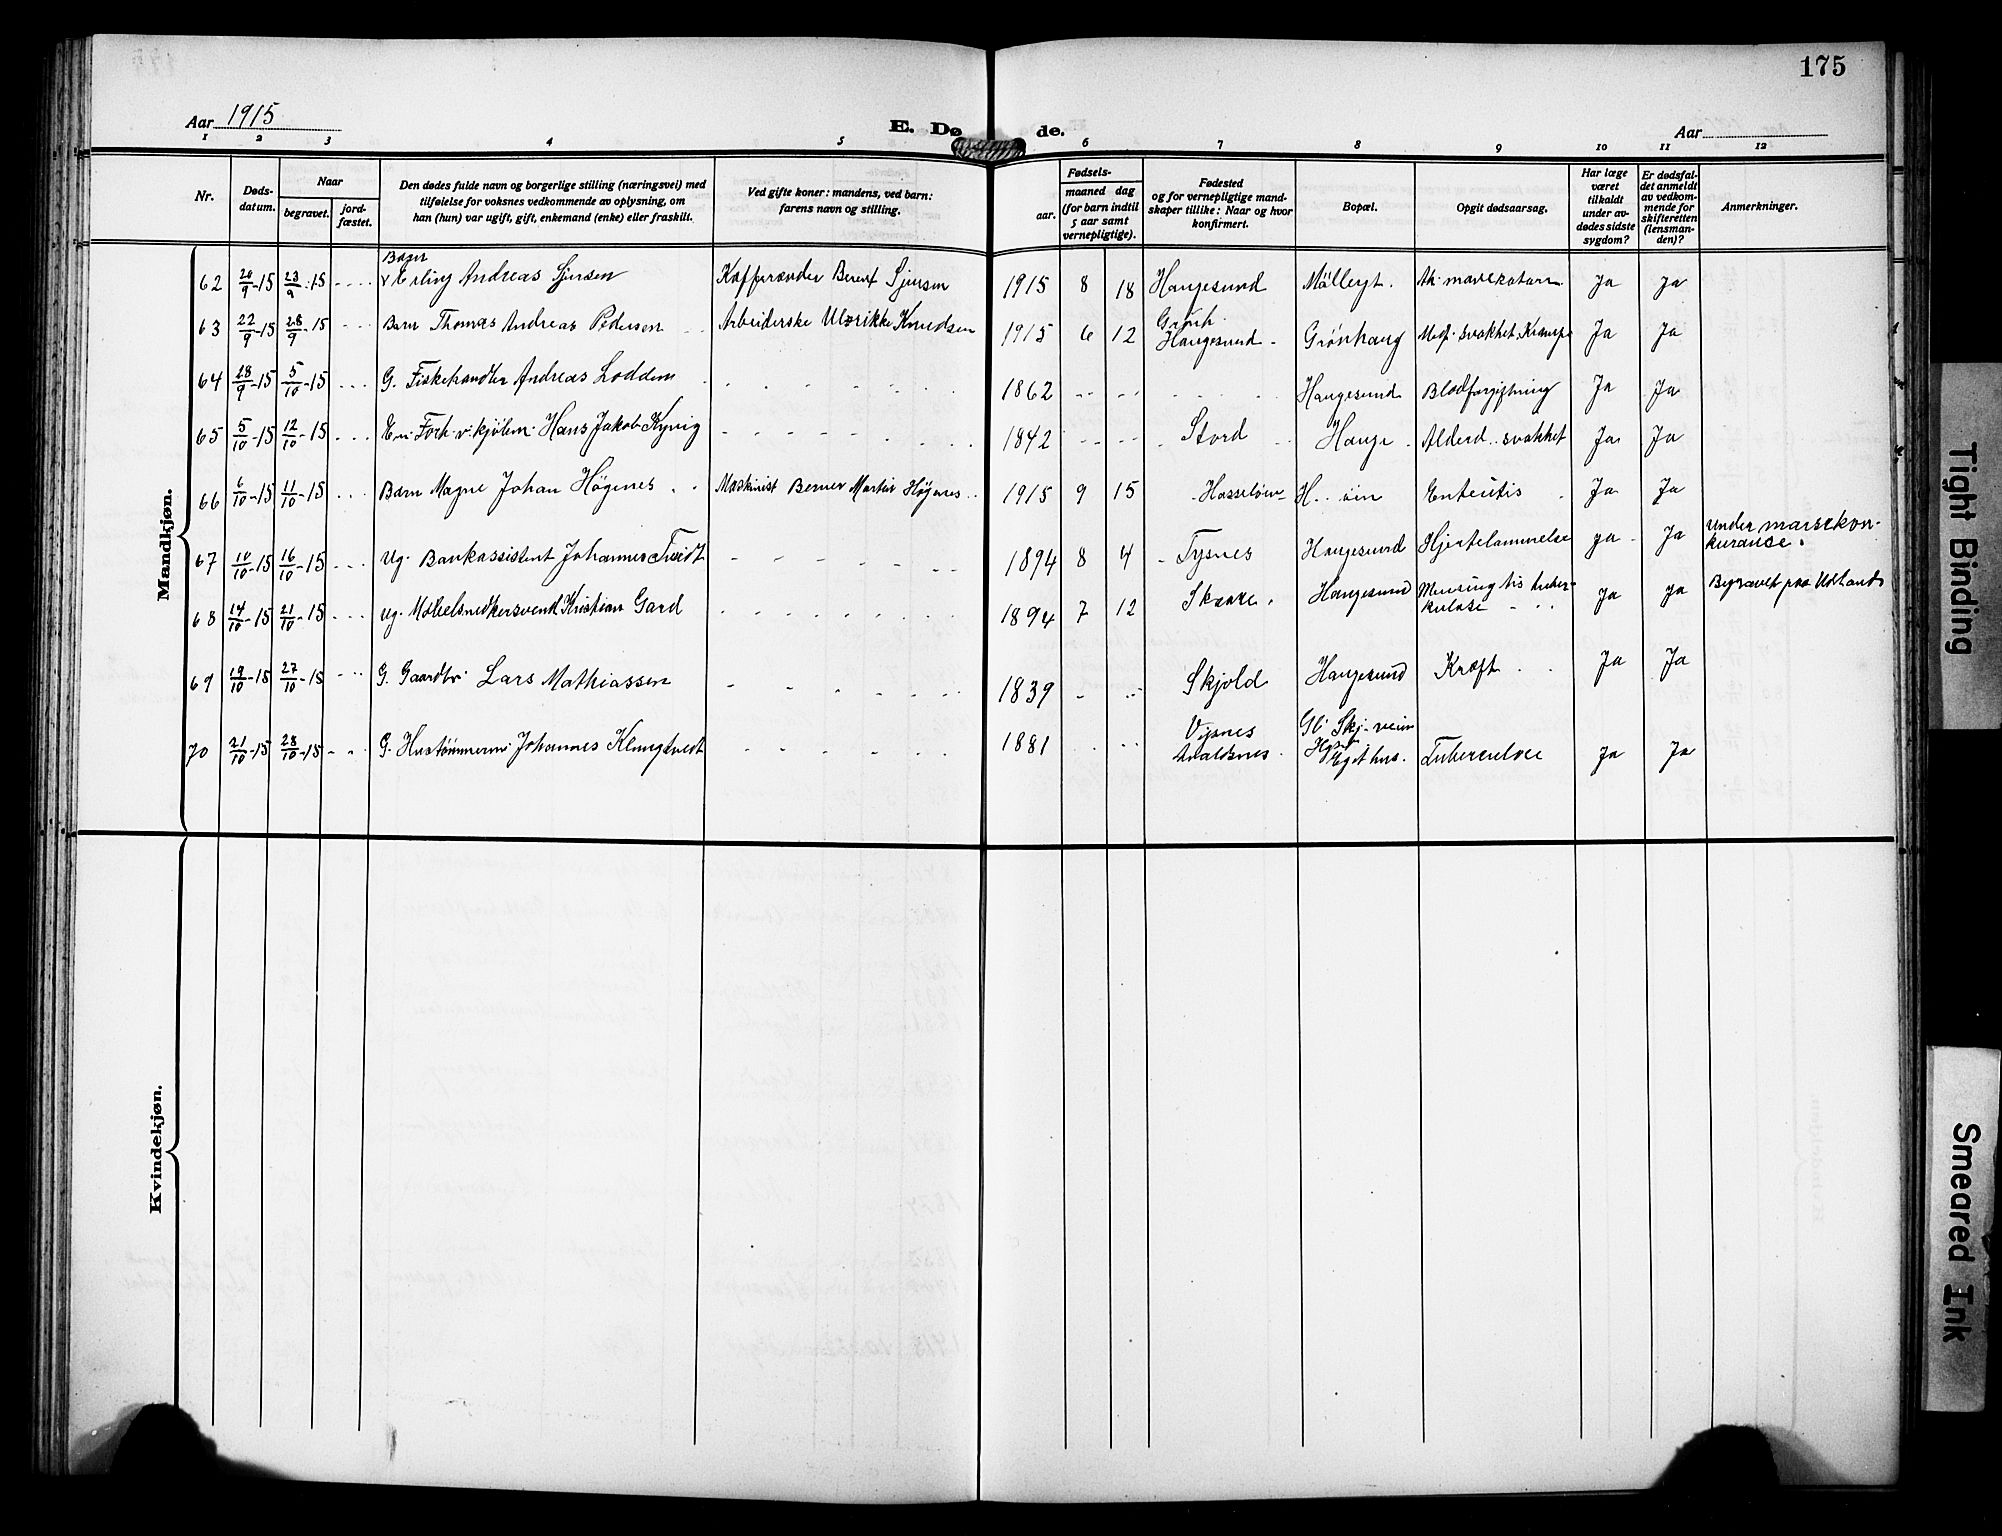 175
Aar 1915
E. Dø de.
Aar
1 2 3 4 5 6 7 8 9 10 11 12
Nr.
Døds-
datum.
Naar
begravet.
jord-
fæstet.
Den dødes fulde navn og borgerlige stilling (næringsvei) med
tilføielse for voksnes vedkommende av oplysning, om
han (hun) var ugift, gift, enkemand (enke) eller fraskilt.
Ved gifte koner: mandens, ved barn:
farens navn og stilling.
Fødsels-
aar.
maaned dag
(for barn indtil
5 aar samt
vernepligtige).
Fødested
og for vernepligtige mand-
skaper tillike: Naar og hvor
konfirmert.
Bopæl.
Opgit dødsaarsag.
Har læge
været
tilkaldt
under av-
dødes sidste
sygdom?
Er dødsfal-
det anmeldt
av vedkom-
mende for
skifteretten
(lensman-
den)?
Anmerkninger.
Mandkjøn.
Barn
62 20/9-15 23/9-15 Erling Andreas Sjursen Berent Sjursen 1915 8 18 Haugesund Møllergt. Ak. mavekatarr Ja Ja
63 22/9-15 28/9-15 Barn Thomas Andreas Pedersen Arbeiderske Ulrikke Knudsen 1915 6 12 Haugesund Grønhaug Medf. svakhet, Krampe Ja Ja
64 28/9-15 5/10-15 G. Fiskehandler Andreas Lodden 1862 Haugesund Blodforgiftning Ja Ja
65 5/10-15 12/10-15 Em. Forh. v. kjøbm. Hans Jakob Kyvig 1842 Stord Hauge Alderd. svakhet Ja Ja
66 6/10-15 11/10-15 Barn Magne Johan Høgenes Maskinist Berner Martin Høgenes 1915 9 15 Hasseløen H. øin Enteritis Ja Ja
67 10/10-15 16/10-15 Ug. Bankassistent Johannes Tveidt 1894 8 4 Tysnes Haugesund Hjertelammelse ja Ja Under marsjkon-
kuranse.
68 14/10-15 21/10-15 Ug. Møbelsnedkersvend Kristian Gard 1894 7 12 Skaare Haugesund Meningitis tuber-
kuløse ja ja Begravet paa Udland
69 19/10-15 27/10-15 G. Gaardbr. Lars Mathiassen 1839 Skjold Haugesund Kræft Ja Ja
70 21/10-15 28/10-15 G. Hustømmerm. Johannes Klungtvedt 1881 Vignes
Avaldsnes Gl. Skj. veien
Eget hus. Tuberculose Ja Ja
Kvindekjøn.
Tight Binding
Smeared Ink